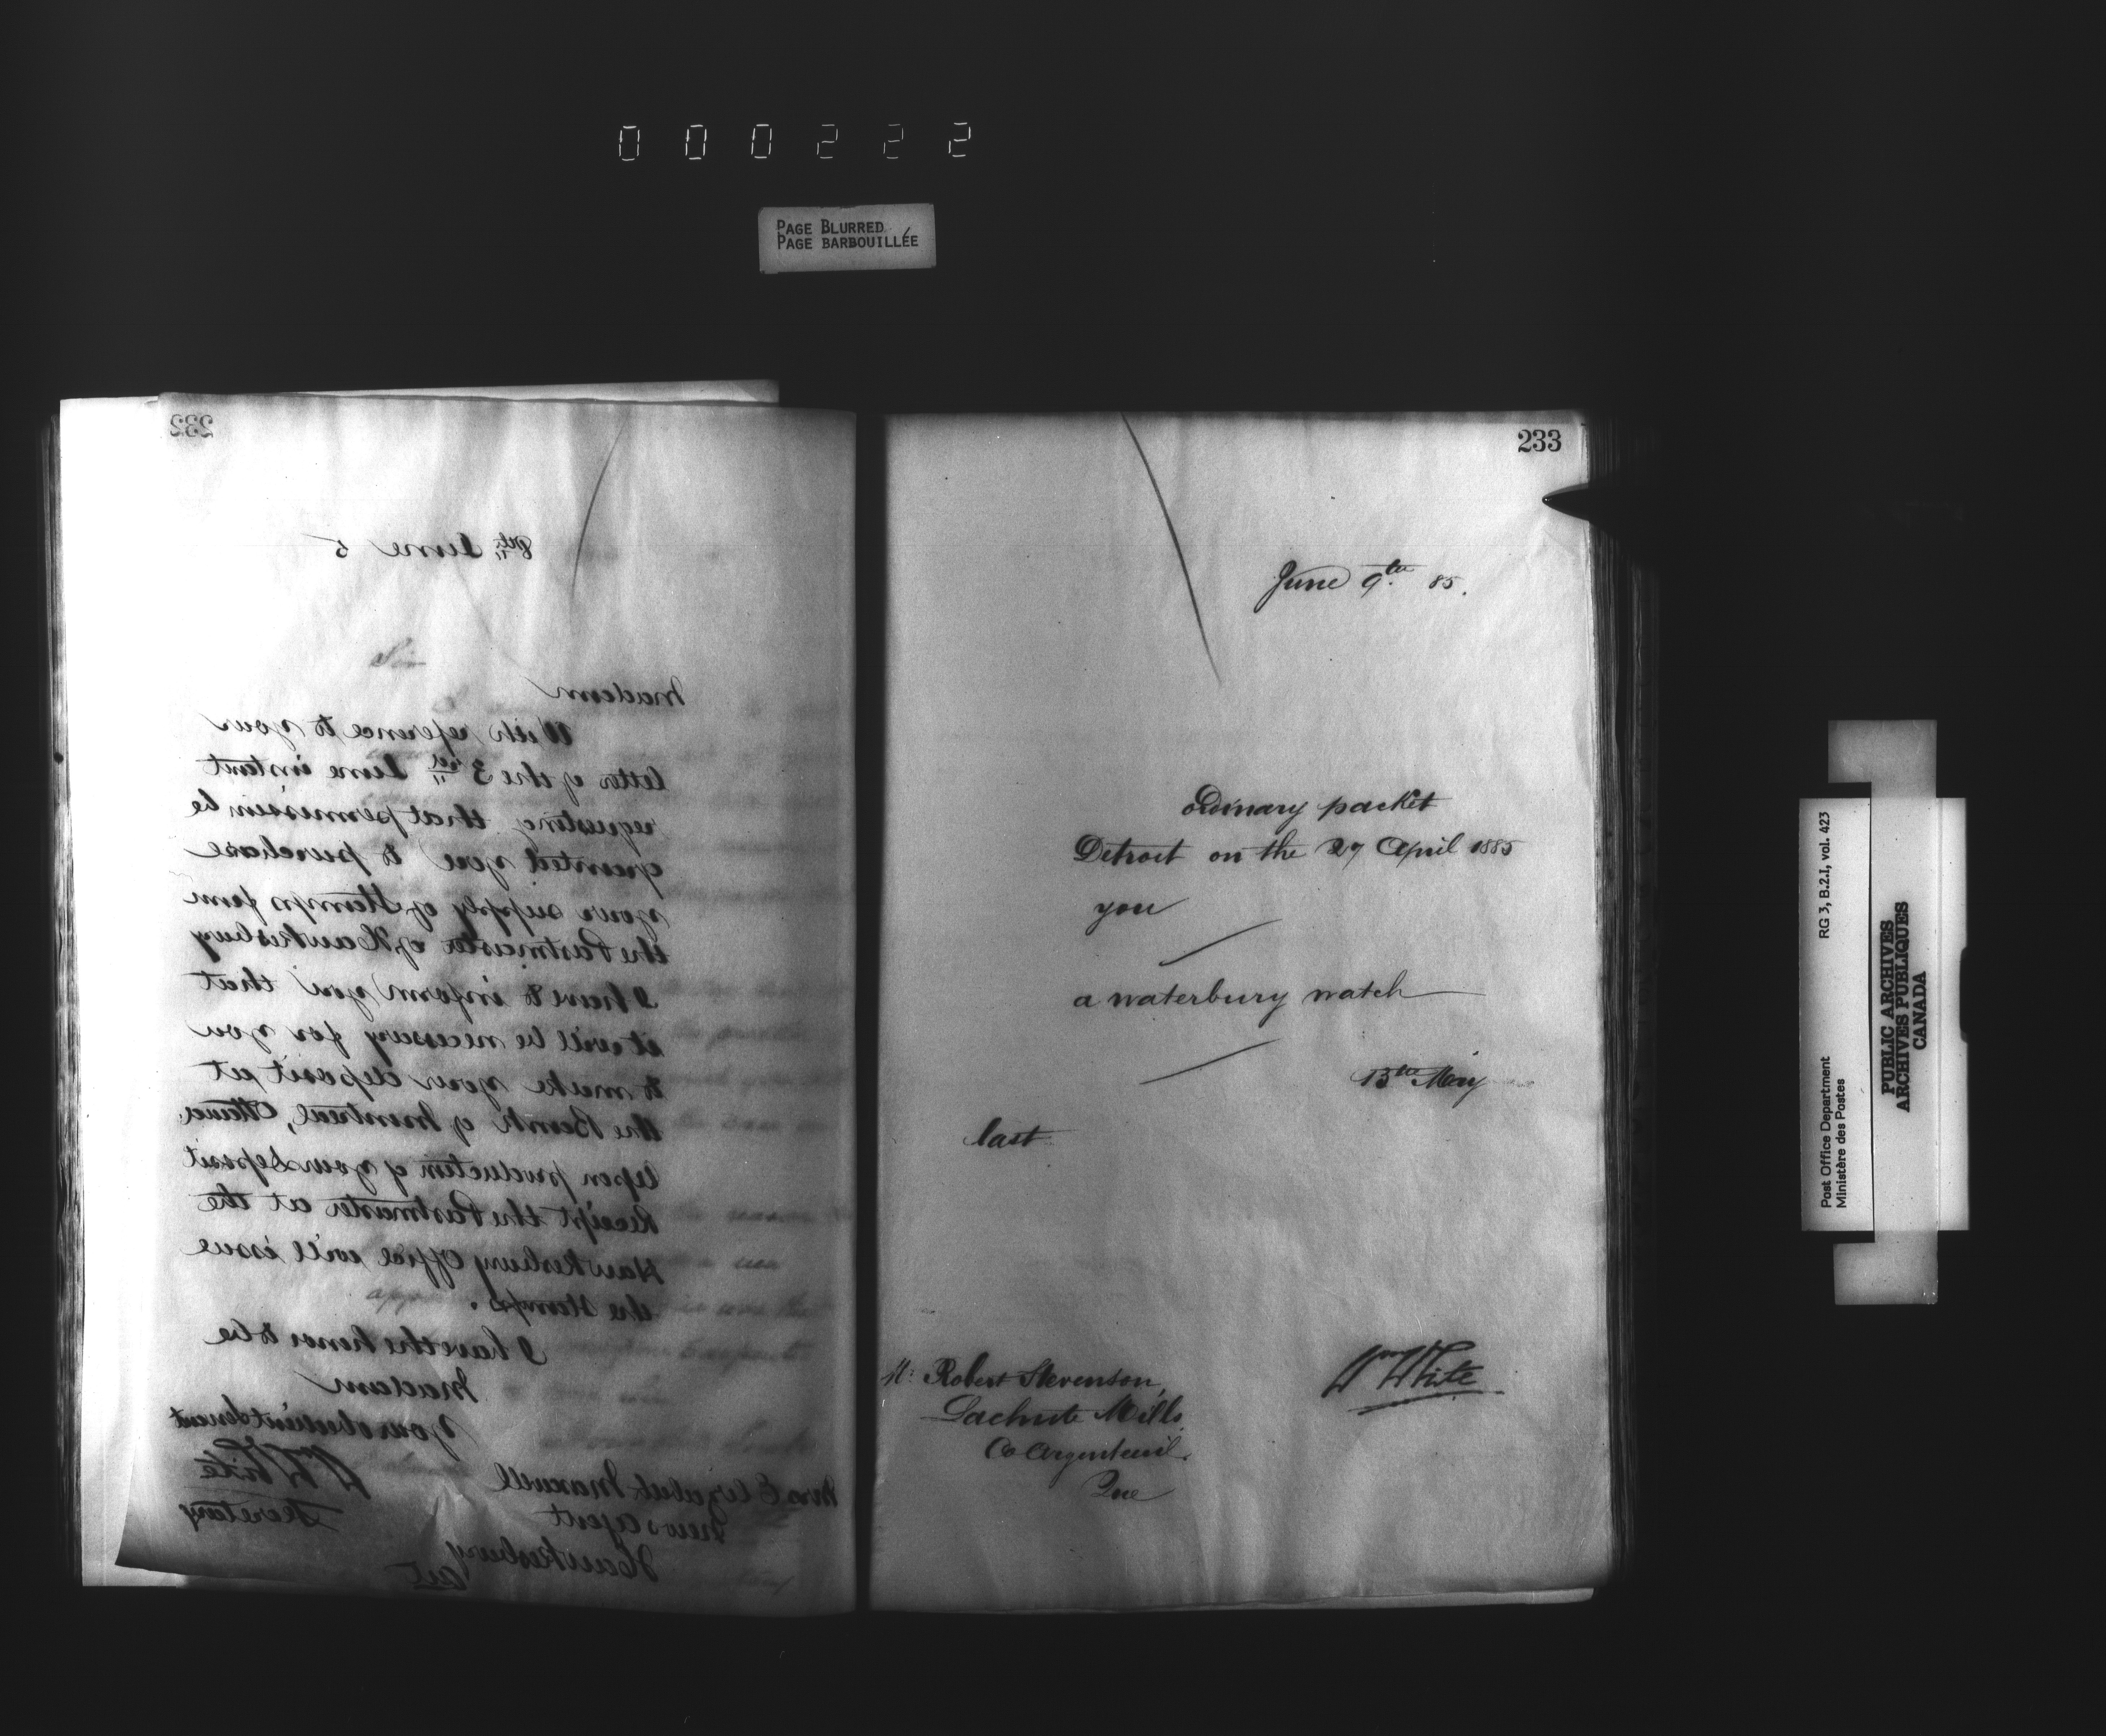 000222
PAGE BLURRED
PAGE BARBOUILLÉE
232
8th June 5
Madam
With reference to your
letter of the 3rd June instant
requesting that permission be
granted you to purchase
your supply of Stamps from
the Postmaster of Hawkesbury
I have to inform you that
it will be necessary for you
to make your deposit at
the Bank of Montreal, Ottawa.
Upon production of your deposit
Receipt the Postmaster at the
Hawkesbury Office will issue
the stamps.
I have the honor to be
Madam
Your obedient Servant
Wm White
Secretary
Mrs Elizabeth Maxwell
News agent
Hawkesbury
Ont
233
June 9th 85.
ordinary packet
Detroit on the 27 April 1885
you
a waterbury watch
13th May
last
Mr Robert Stevenson,
Lachute Mills,
Co Argenteuil.
Que
Wm White
Post Office Department
Ministère des Postes
RG 3, B.2.I, vol. 423
PUBLIC ARCHIVES
ARCHIVES PUBLIQUES
CANADA